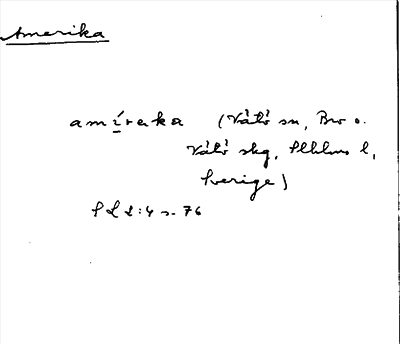 Amerika
amíreka (Vätö sn, Bro o.
Vätö skg, Sthlms l,
Sverige)
S L 2:4 s. 76